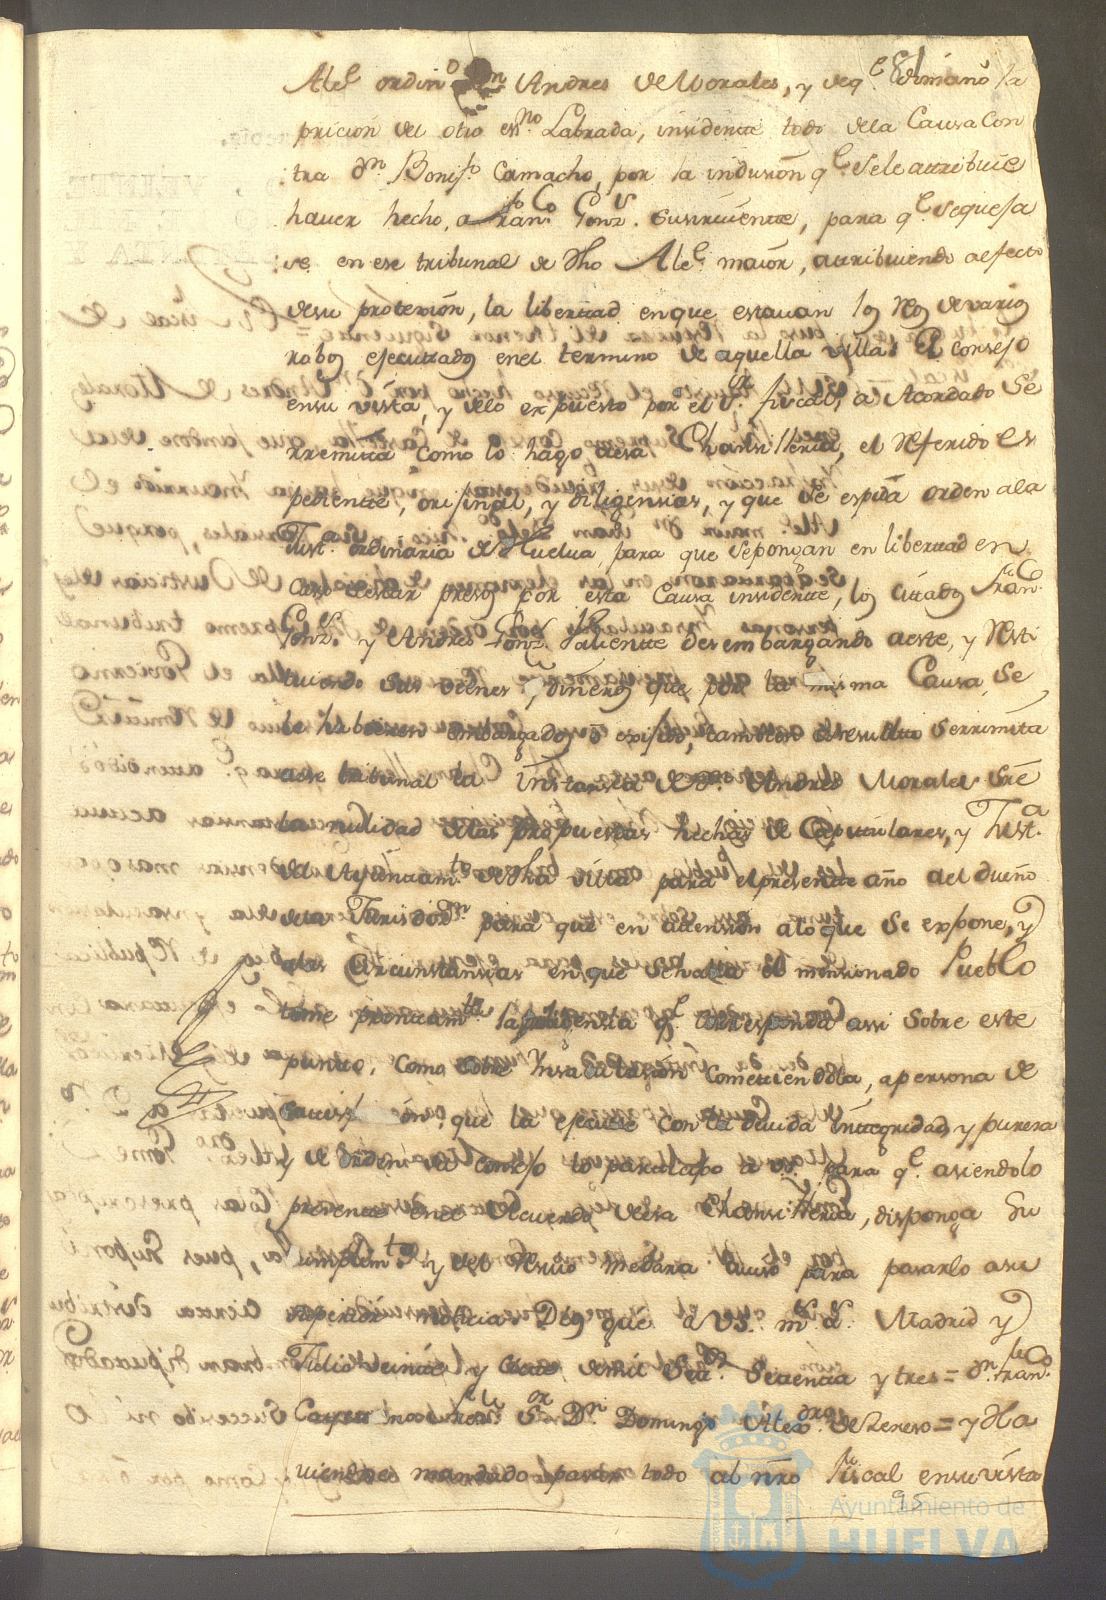 81
Alc.e ordin.o D.n Andres de Morales, y de q.e dimano la
pricion del otro es.no Labrada, insidente todo dela Causa Con
tra D.n Bonif.o Camacho, por la indusion q.e sele attribuie
haver hecho, a Fran.co Gonz.s suvirviente, para q.e sequeja
se en ese tribunal de dho Alc.e maior, attribuiendo aefecto
desu protexion, la libertad enque estavan los Reos devarios
robos efecuttados enel termino de aquella villa: El consejo
ensu vista, y delo expuesto por el S.or fiscal, a Acordado Se
rremitta como lo hago aesa Chansilleria, el Referido Es
pediente, orijinal, y diligensias, y que se espida orden ala
Just.a ordinaria de Huelva, para que sepongan en libertad en
Caso deestar presos por esta Causa insidente, los cittados Fran.co
Gonz.s y Andres Gonz.s Valiente desembargando aeste, y Resti
tuiendo sus vienes y dineros que por la misma Causa, se
le hubiesen embargados o exisido, tambien esresuelto serrimita
aese tribunal la instansia de D.n Andres Morales sre
la nulidad delas propuestas hechas de Capitulares, y Just.a
del Ayuntam.to dedha villa para elpresente año al dueño
dela Jurisdiz.n para que en attension aloque se expone, y
alas Circunstansias enque sehalla el mensionado Pueblo
tome prontam.te la providensia q.e corresponda assi sobre este
punto, como sobre Insaculasion comettiendola, apersona de
que la ejecute con la devida inttegridad, y pureza
y de orden del consejo lo partisipo a VS. para q.e asiendolo
presente enel Acuerdo deesa Chansilleria, disponga su
cumplim.to y del resivo medara aviso para pasarlo asu
superior noticia. Dios gue. a VS. m.s a.s Madrid y
Julio veintte y siete demil Set.os Setentta y tres = D.n Fran.co
Lopez nos S.or D.n Domingo Alex.dro de Zerezo = y Ha
viendose mandado pasar todo al nro fiscal ensuvista
95
Ayuntamiento de
HUELVA